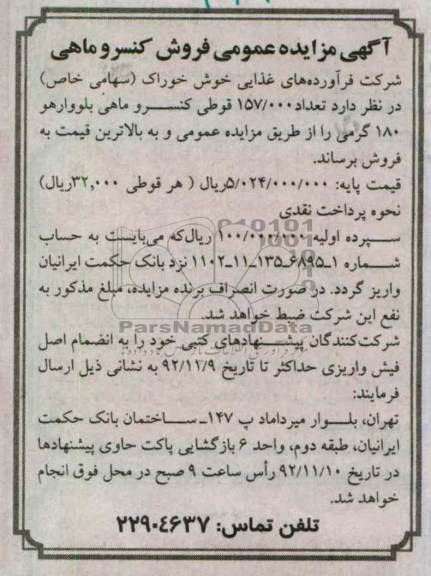 آگهی مزایده عمومی فروش کنسرو ماهی
شرکت فرآورده‌های غذایی خوش خوراک (سهامی خاص)
در نظر دارد تعداد ۱۵۷/۰۰۰ قوطی کنسرو ماهی بلووارهو
۱۸۰ گرمی را از طریق مزایده عمومی و به بالاترین قیمت به
فروش برساند.
قیمت پایه: ۵/۰۲۴/۰۰۰/۰۰۰ریال ( هر قوطی ۳۲,۰۰۰ریال)
نحوه پرداخت نقدی
سپرده اولیه ۱۰۰/۰۰۰/۰۰۰ ریال‌که می‌بایست به حساب
شماره ۱ـ۶۸۹۵ـ۱۳۵ـ۱۱ـ۱۱۰۲ نزد بانک حکمت ایرانیان
واریز گردد. در صورت انصراف برنده مزایده، مبلغ مذکور به
نفع این شرکت ضبط خواهد شد.
ParsNamadData
شرکت‌کنندگان پیشنهادهای کتبی خود را به انضمام اصل
فیش واریزی حداکثر تا تاریخ ۹۲/۱۱/۹ به نشانی ذیل ارسال
فرمایند:
تهران، بلوار میرداماد پ ۱۴۷ـ ساختمان بانک حکمت
ایرانیان، طبقه دوم، واحد ۶ بازگشایی پاکت حاوی پیشنهادها
در تاریخ ۹۲/۱۱/۱۰ رأس ساعت ۹ صبح در محل فوق انجام
خواهد شد.
تلفن تماس: ۲۲۹۰۴۶۳۷